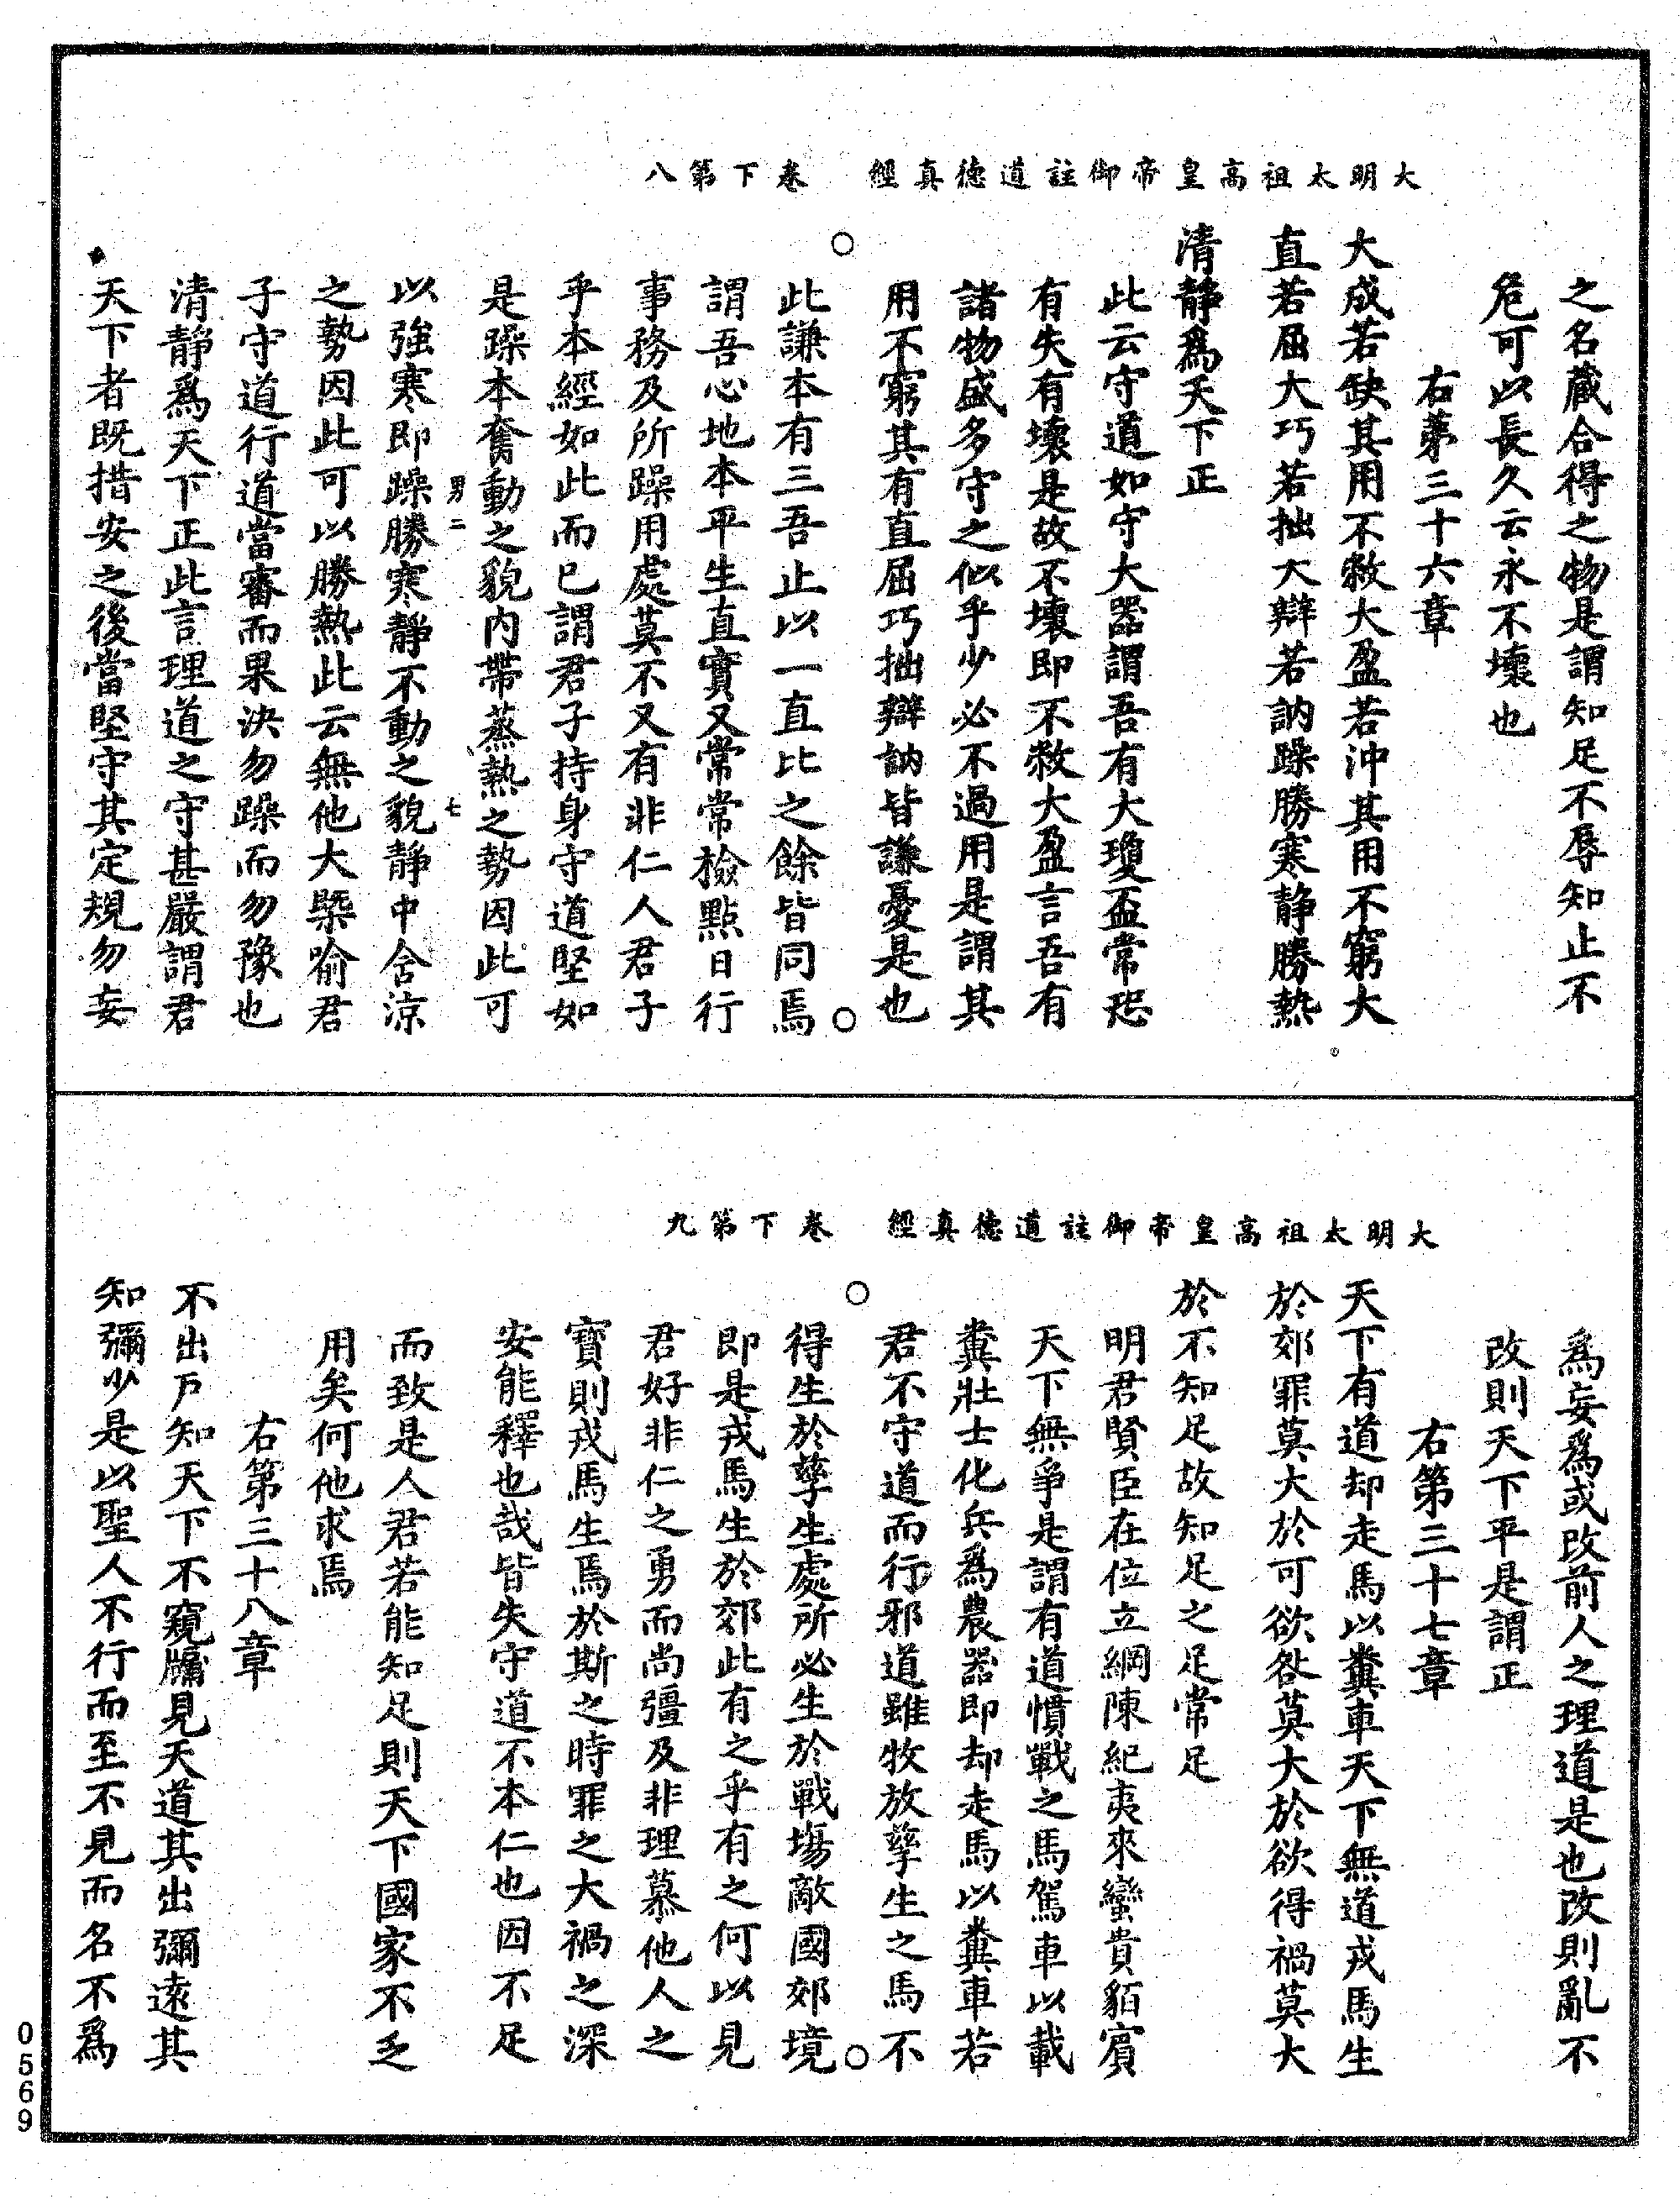 大明太祖高皇帝御註道德真經　卷下第八
之名藏合得之物是謂知足不辱知止不
危可以長久云永不壞也
右第三十六章
大成若缺其用不敝大盈若沖其用不窮大
直若屈大巧若拙大辯若訥躁勝寒静勝熱
清静爲天下正
此云守道如守大器謂吾有大瓊盃常恐
有失有壞是故不壞即不敝大盈言吾有
諸物盛多守之似乎少必不過用是謂其
用不窮其有直屈巧拙辯訥皆謙憂是也
○　○
此謙本有三吾止以一直比之餘皆同焉
謂吾心地本平生直實又常常檢點日行
事務及所躁用處莫不又有非仁人君子
乎本經如此而已謂君子持身守道堅如
是躁本奮動之貌内帶蒸熱之勢因此可
男二　七
以強寒即躁勝寒静不動之貌静中含涼
之勢因此可以勝熱此云無他大槩喻君
子守道行道當審而果決勿躁而勿豫也
清静爲天下正此言理道之守甚嚴謂君
天下者既措安之後當堅守其定規勿妄
大明太祖高皇帝御註道德真經　卷下第九
爲妄爲或改前人之理道是也改則亂不
改則天下平是謂正
右第三十七章
天下有道却走馬以糞車天下無道戎馬生
於郊罪莫大於可欲咎莫大於欲得禍莫大
於不知足故知足之足常足
明君賢臣在位立綱陳紀夷來蠻貴貊賓
天下無爭是謂有道慣戰之馬駕車以載
糞壯士化兵爲農器即却走馬以糞車若
君不守道而行邪道雖牧放孳生之馬不
○　○
得生於孳生處所必生於戰塲敵國郊境
即是戎馬生於郊此有之乎有之何以見
君好非仁之勇而尚彊及非理慕他人之
寶則戎馬生焉於斯之時罪之大禍之深
安能釋也哉皆失守道不本仁也因不足
而致是人君若能知足則天下國家不乏
用矣何他求焉
右第三十八章
不出戶知天下不窺牖見天道其出彌遠其
知彌少是以聖人不行而至不見而名不爲
0569